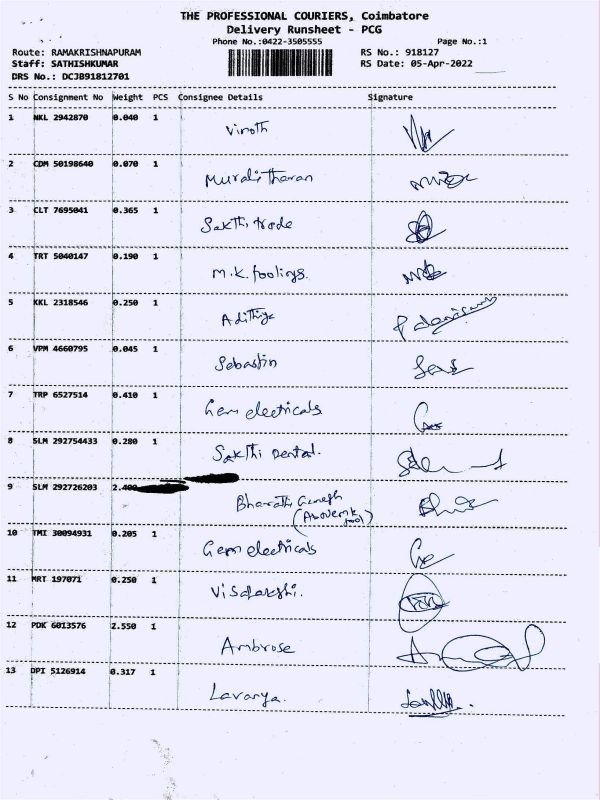 THE PROFESSIONAL COURIERS, Coimbatore
Delivery Runsheet - PCG
Phone No.:0422-3505555 Page No.:1
Route: RAMAKRISHNAPURAM RS No.: 918127
Staff: SATHISHKUMAR RS Date: 05-Apr-2022
DRS No.: DCJB91812701
S No Consignment No Weight PCS Consignee Details Signature
1 NKL 2942870 0.040 1 Vinoth
2 CDM 50198640 0.070 1 Muralitharan
3 CLT 7695041 0.365 1 Sakthi trade
4 TRT 5040147 0.190 1 M.K. toolings.
5 KKL 2318546 0.250 1 Adithiya
6 VPM 4660795 0.045 1 Sebastin
7 TRP 6527514 0.410 1 Gem electricals
8 SLM 292754433 0.280 1 Sakthi Dental.
9 SLM 292726203 Bharathi Ganesh
10 TMI 30094931 0.205 1 Gem electricals
11 MRT 197071 0.250 1 Visalakshi.
12 PDK 6013576 2.550 1 Ambrose
13 DPI 5126914 0.317 1 Lavanya.